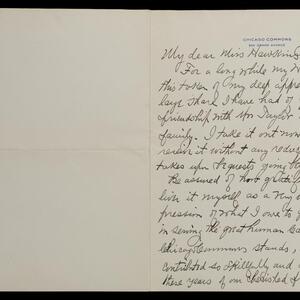 CHICAGO COMMONS
955 GRAND AVENUE
My dear Miss Hawkins
For a long while my
this token of my deep appre
large share I have had of
friendship with Mrs Taylor
family. I take it out now
receive it without any
takes upon bequests, going
Be assured of how grateful
give it myself as a
pression of what I owe to
in serving the great human
Chicago Commons stands,
contributed so skillfully and
these years of our cherished